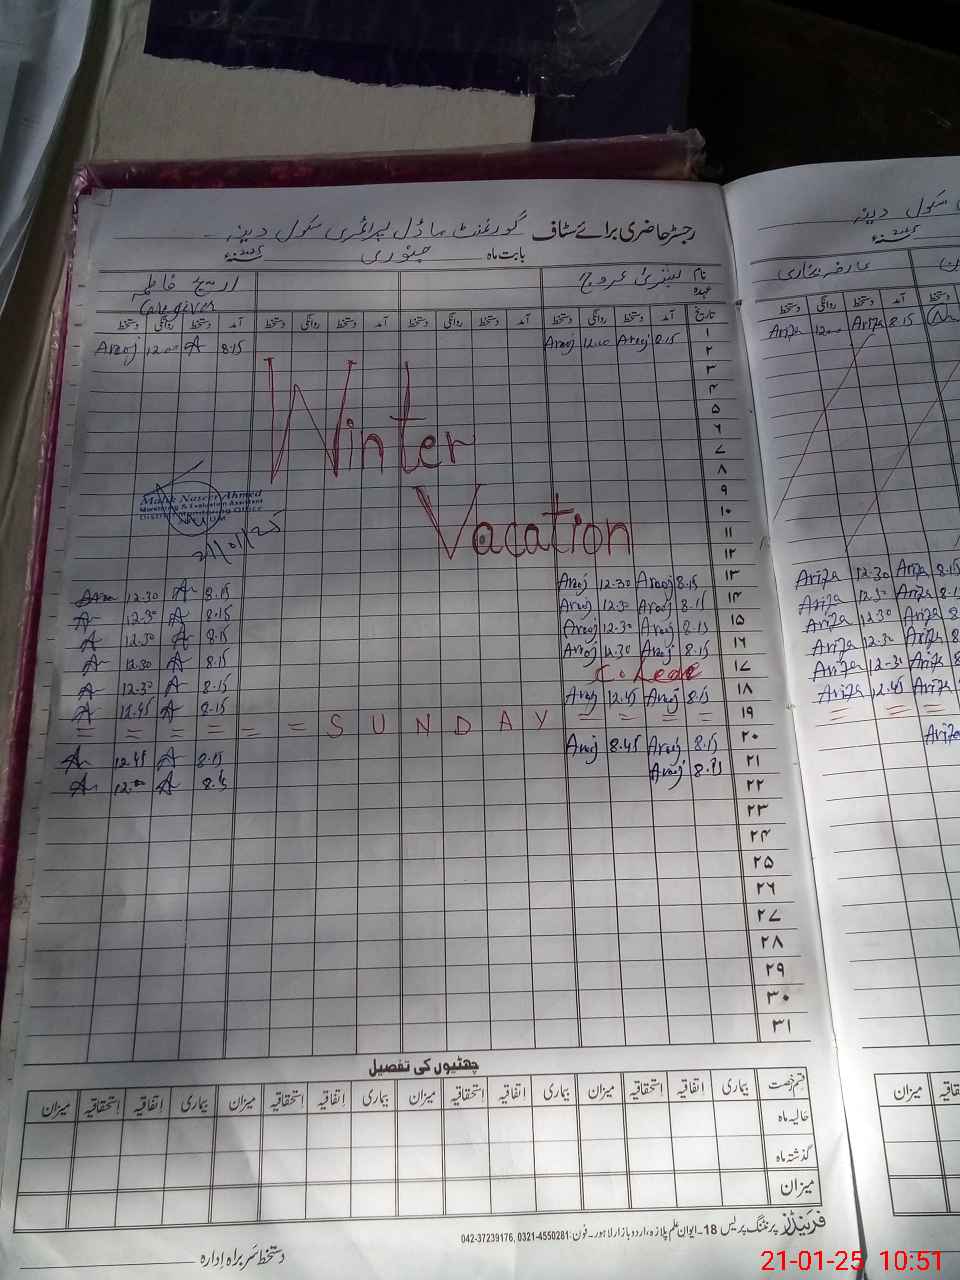 رجسٹر حاضری برائے سٹاف گورنمنٹ ماڈل پرائمری سکول دینہ
بابت ماہ جنوری 2025ء
نام
عہدہ
عروج
اریج فاطمہ
Caregiver
تاریخ آمد دستخط روانگی دستخط آمد دستخط روانگی دستخط آمد دستخط روانگی دستخط آمد دستخط روانگی دستخط
۱ 8.15 Arooj 12.00 Arooj 8.15 A 12.00 Arooj
۲
۳
۴
۵
۶
۷
۸
۹
۱۰
۱۱
۱۲
Winter
Vacation
Malik Naseer Ahmed
Monitoring & Evaluation Assistant
District Monitoring Office
21/01/25
۱۳ 8.15 Arooj 12.30 Arooj 8.15 A 12.30
۱۴ 8.15 Arooj 12.30 Arooj 8.15 A 12.30 A
۱۵ 8.15 Arooj 12.30 Arooj 8.15 A 12.30 A
۱۶ 8.15 Arooj 12.30 Arooj 8.15 A 12.30 A
۱۷ 8.15 A 12.30 A
۱۸ 8.15 Arooj 12.45 Arooj 8.15 A 12.45 A
۱۹ = = = = SUNDAY = = = = = =
۲۰ 8.15 Arooj 8.45 Arooj 8.15 A 12.45 A
۲۱ 8.15 Arooj 8.15 A 12.00 A
۲۲
۲۳
۲۴
۲۵
۲۶
۲۷
۲۸
۲۹
۳۰
۳۱
چھٹیوں کی تفصیل
قسم رخصت بیماری اتفاقیہ استحقاقیہ میزان بیماری اتفاقیہ استحقاقیہ میزان بیماری اتفاقیہ استحقاقیہ میزان بیماری اتفاقیہ استحقاقیہ میزان
حالیہ ماہ
گذشتہ ماہ
میزان
فرینڈز پرنٹنگ پریس 18۔ایوان علم پلازہ،اردو بازار لاہور۔فون: 042-37239176, 0321-4550281
دستخط سربراہ ادارہ
سکول دینہ
2025ء
عارفہ بخاری
آمد دستخط روانگی دستخط
8.15 Ariza 12.00 Ariza
8.15 Ariza 12.30 Ariza
8.15 Ariza 12.30 Ariza
8.15 Ariza 12.30 Ariza
8.15 Ariza 12.30 Ariza
8.15 Ariza 12.30 Ariza
8.15 Ariza 12.45 Ariza
= = =
Ariza
میزان
21-01-25 10:51